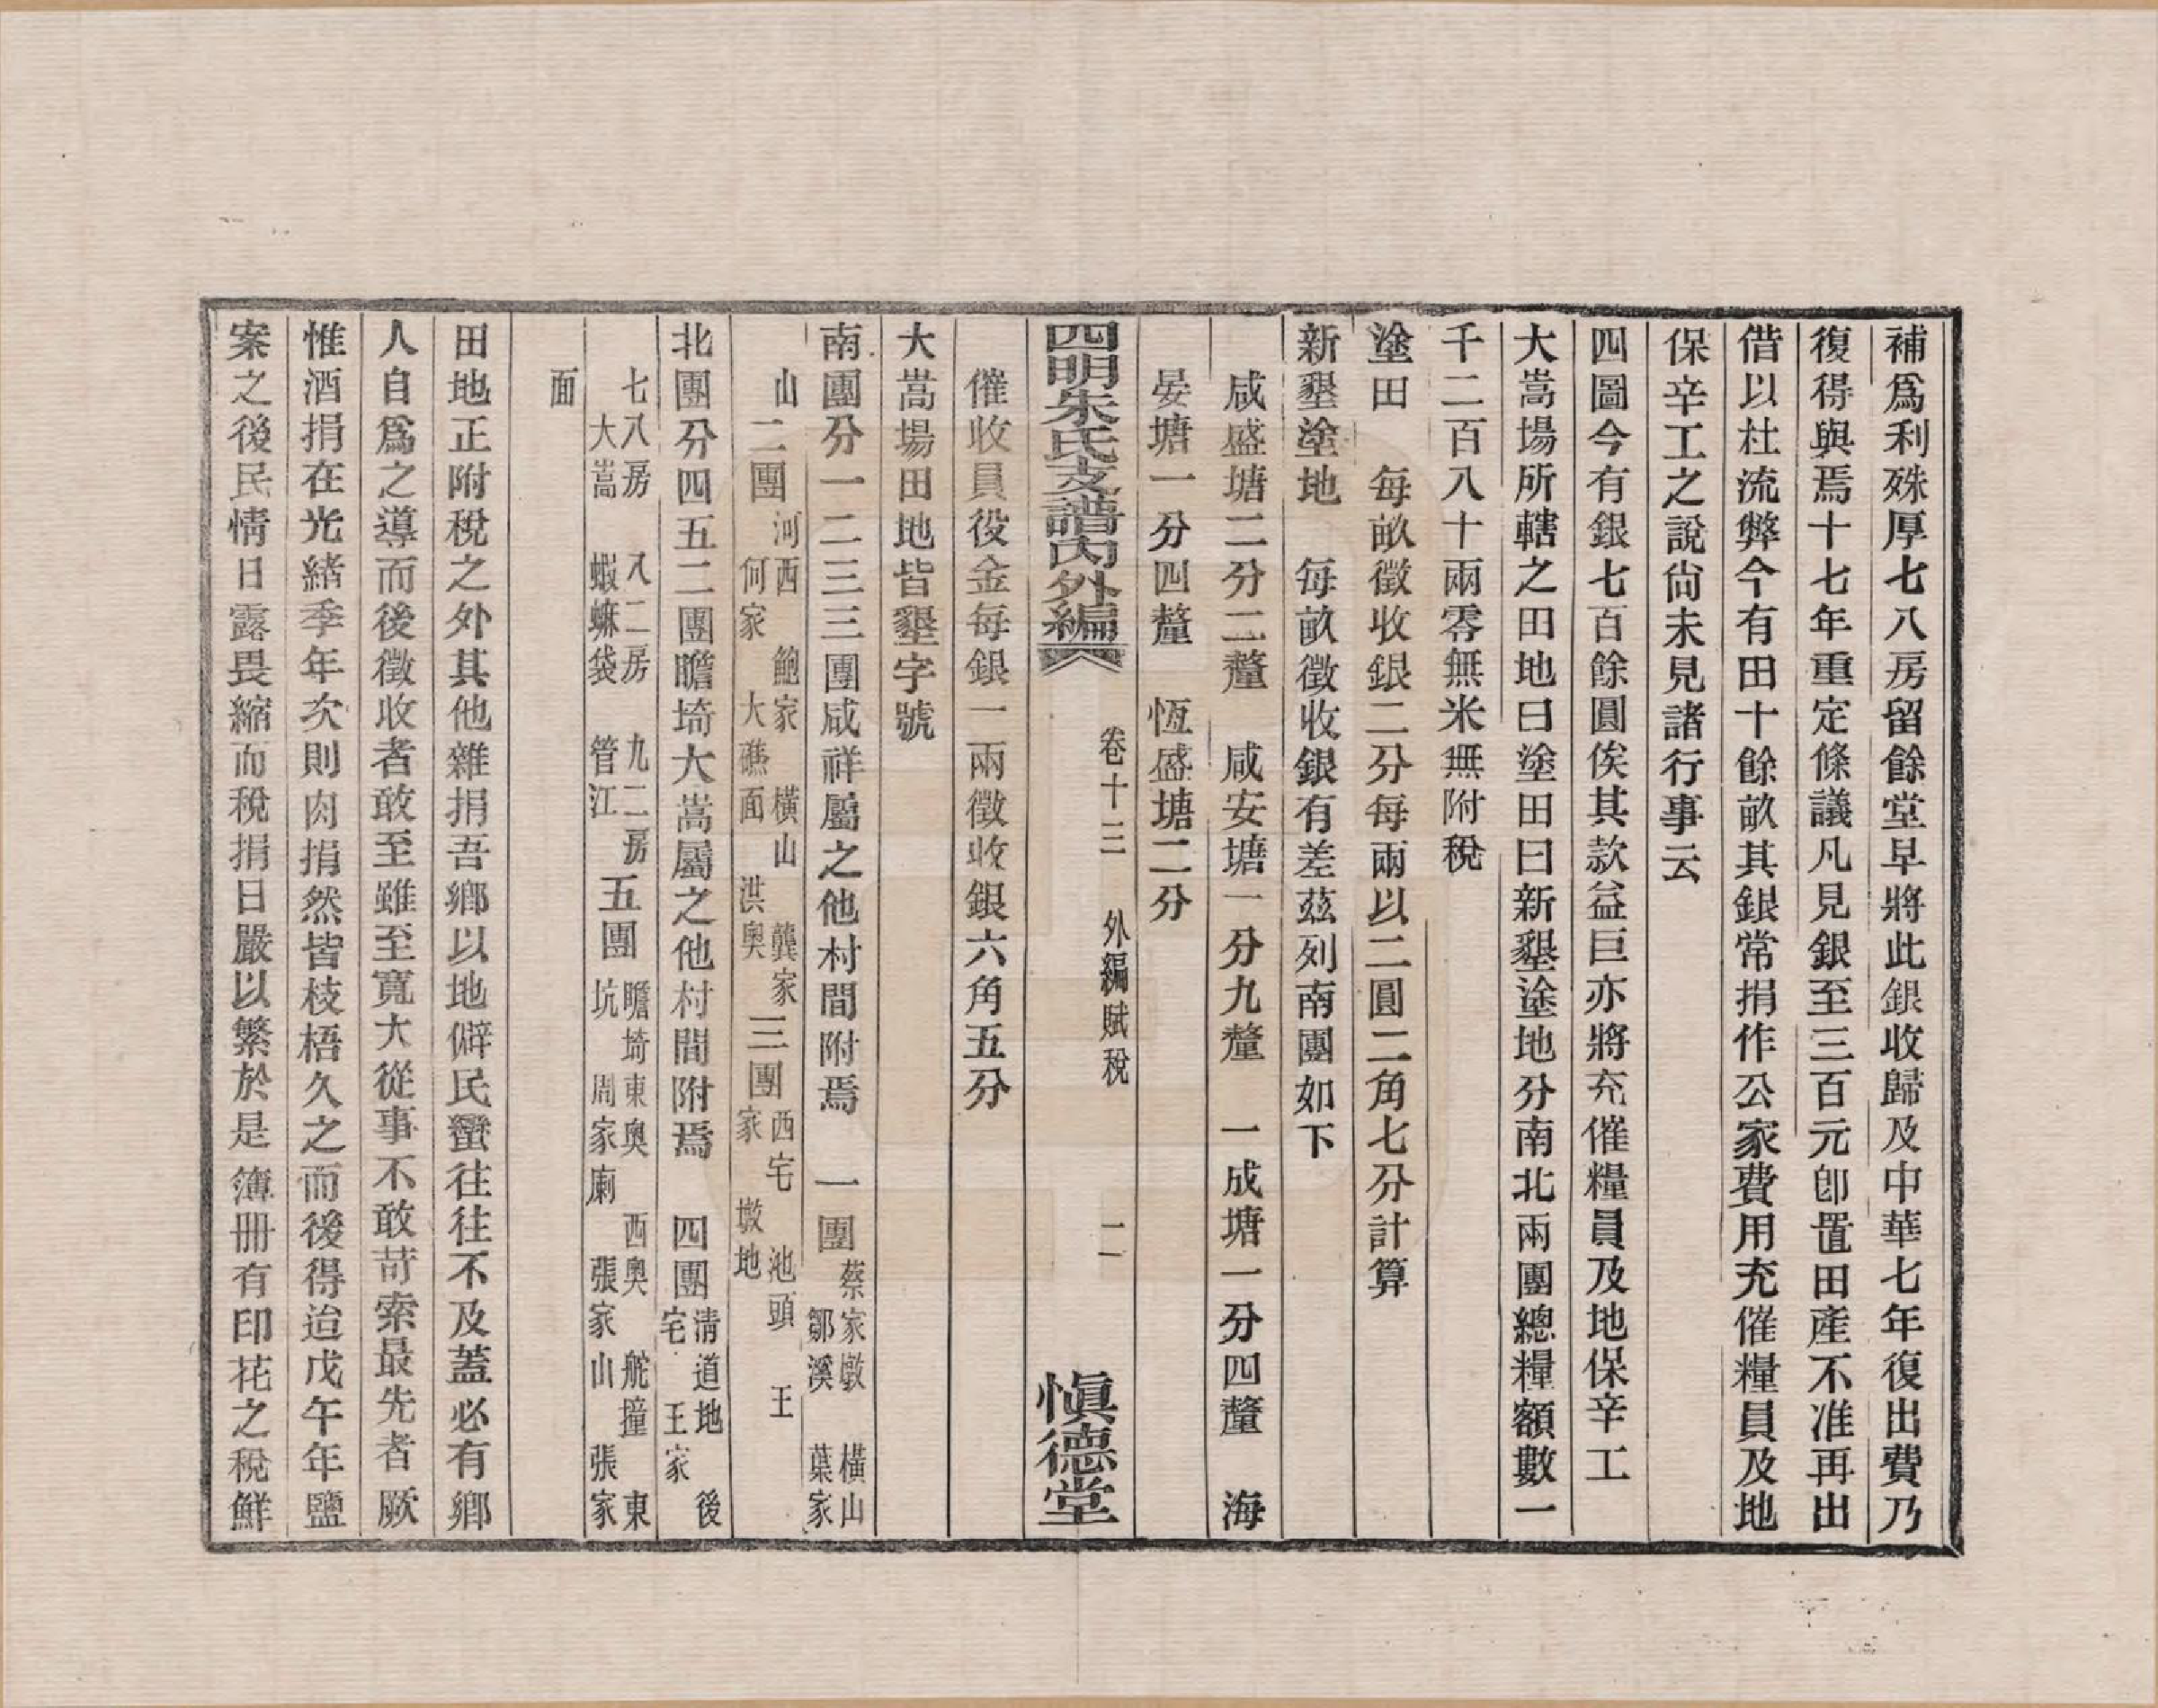 補爲利殊厚七八房留餘堂早將此銀收歸及中華七年復出費乃
復得與焉十七年重定條議凡見銀至三百元卽置田產不准再出
借以杜流弊今有田十餘畝其銀常捐作公家費用充催糧員及地
保辛工之說尙未見諸行事云
四圖今有銀七百餘圓俟其款益巨亦將充催糧員及地保辛工
大嵩場所轄之田地曰塗田曰新墾塗地分南北兩團總糧額數一
千二百八十兩零無米無附稅
塗田　每畝徵收銀二分每兩以二圓二角七分計算
新墾塗地　每畝徵收銀有差茲列南團如下
咸盛塘二分二釐　咸安塘一分九釐　一成塘一分四釐　海
晏塘一分四釐　恆盛塘二分
四明朱氏支譜內外編　卷十三　外編賦稅　二　愼德堂
催收員役金每銀一兩徵收銀六角五分
大嵩場田地皆墾字號
南團分一二三三團咸祥屬之他村間附焉　一團蔡家墩　橫山
鄒溪　葉家
山二團河西　鮑家　橫山　龔家
何家　大礁面　洪奧三團西宅　池頭　王
家　墩地
北團分四五二團瞻埼大嵩屬之他村間附焉　四團淸道地　後
宅　王家
七八房　八二房　九二房
大嵩　蝦蟆袋　管江五團瞻埼東奧　西奧　舵撞　東
坑　周家廟　張家山　張家
面
田地正附稅之外其他雜捐吾鄕以地僻民蠻往往不及蓋必有鄕
人自爲之導而後徵收者敢至雖至寬大從事不敢苛索最先者厥
惟酒捐在光緖季年次則肉捐然皆枝梧久之而後得迨戊午年鹽
案之後民情日露畏縮而稅捐日嚴以繁於是簿冊有印花之稅鮮